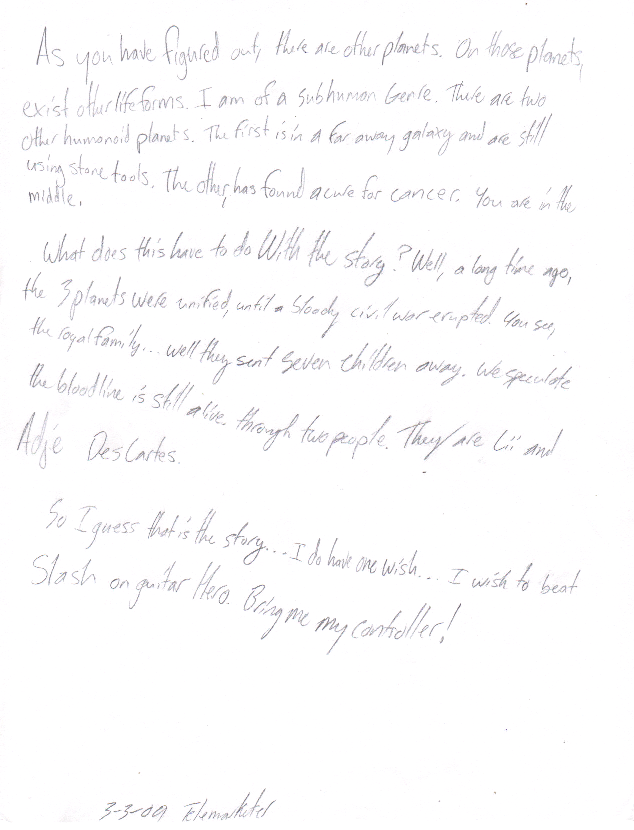 As you have figured out, there are other planets. On those planets,
exist other life forms. I am of a subhuman Genre. There are two
other humanoid planets. The first is in a far away galaxy and are still
using stone tools. The other, has found a cure for cancer. You are in the
middle.
What does this have to do With the story? Well, a long time ago,
the 3 planets were unified, until a bloody civil war erupted. You see,
the royal family... well they sent seven children away. We speculate
the bloodline is still alive. through two people. They are Lii and
Adje DesCartes.
So I guess that is the story... I do have one wish... I wish to beat
Slash on guitar Hero. Bring me my controller!
3-3-09 Telemarketer